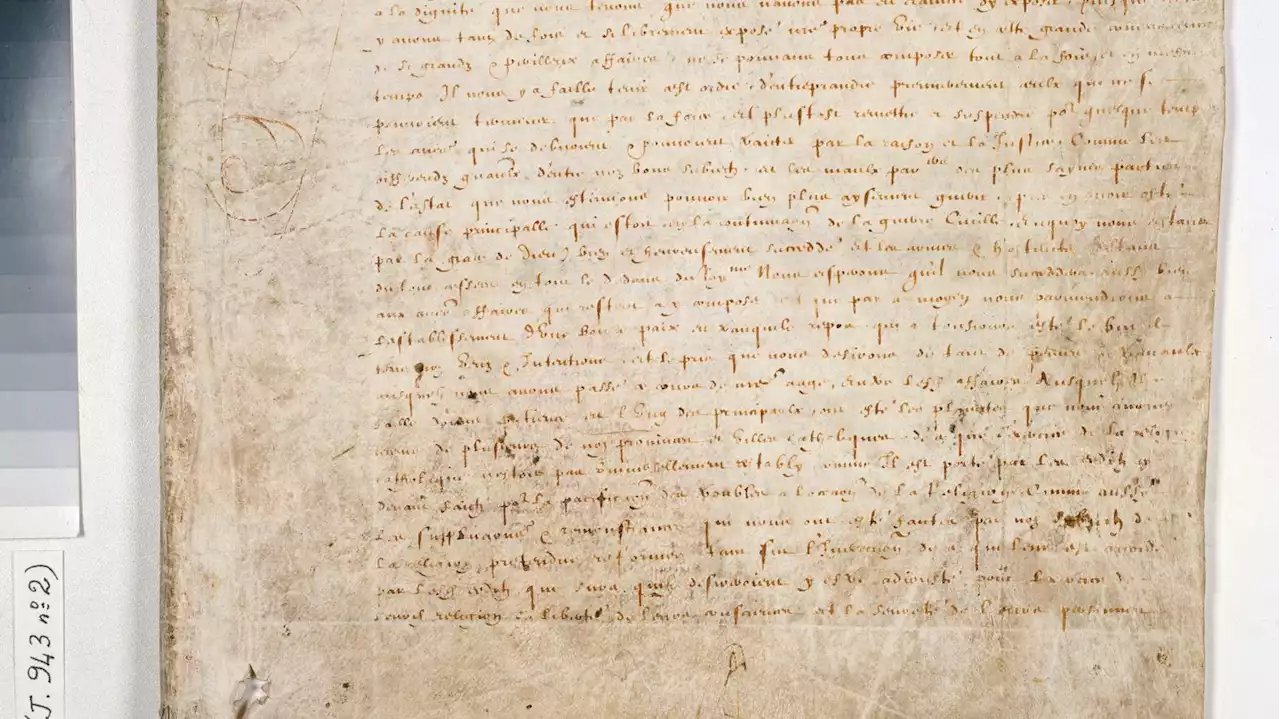 a la dignité que nous tenons que nous navons pas eu crainte dy exposer
y avons tant de fois et si librement exposé nre propre vie et en ceste grande concurrence
de si grandz & perilleux affaires ne se pouvans tous composer tout a la fois et en mesme
temps Il nous y a fallu tenir cest ordre dentreprandre premierement ceulx qui ne se
pouvoient terminer que par la force et plustost remettre et suspendre pour quelque temps
les autres qui se debvoient & pouvoient traicter par la raison et la Justice Comme les
differendz dentre noz bons subiectz et les maulx par des plus saynes parties
de lestat que nous estimions pouvoir bien plus aysement guerir apres en avoir osté
la cause principalle qui estoit en la continuaon de la guerre Civille en quoy nous estant
par la grace de Dieu bien et heureusement succeddé et les armes & hostilitez estans
du tout cessees en tout le dedans du Royme Nous esperons quil nous succeddera aussi bien
aux autres affaires qui restent a y composer et que par ce moyen nous parviendrons a
lestablissement dune bonne paix et tranquile repos qui a tousiours esté le but de
tous noz veuz & Intentions et le prix que nous desirons de tant de peines & travaulx
ausquelz nous avons passé ce cours de nre aage entre lesd affaires Ausquelz il a
fallu donner patience et lUng des principaulx ont esté les plainctes que nous avons
receues de plusieurs de noz provinces et Villes catholiques de ce que lexercice de la religion
catholique nestoit pas Universellement restably comme Il est porté par les edictz cy
devant faictz pour la pacificaon des troubles a loccaon de la Religion Comme aussi
Les supplicaons & remonstrances qui nous ont esté faictes par noz subiectz de
La religion pretendue reformee tant sur lInexecution de ce qui leur est accordé
par lesd edictz que sur ce quilz desireroient y estre adiousté pour lexercice de
leurd religion la liberté de leurs consciences et la seureté de leurs personnes
(J. 943 n° 2)